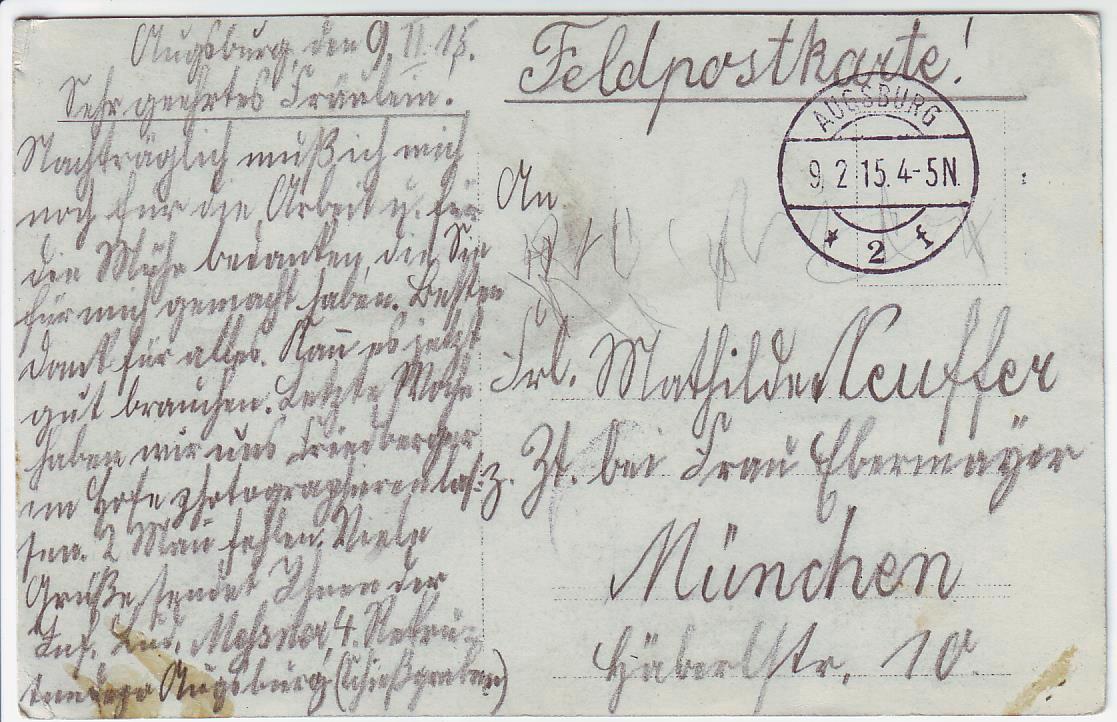 Augsburg, den 9. II. 15.
Sehr geehrtes Fräulein.
Nachträglich muß ich mich
noch für die Arbeit u. für
die Mühe bedanken, die Sie
für mich gemacht haben. Besten
Dank für alles. Kan̄ es jetzt
gut brauchen. Letzte Woche
haben wir uns Friedberger
im Hofe photographieren las-
sen. 2 Man̄ fehlen. Viele
Grüße sendet Ihnen der
Inf. Lud. 4. Rekru-
tendepo Augsburg (Schießgraben)
Feldpostkarte!
AUGSBURG
9. 2. 15. 4-5N.
* 2 f
An
Frl. Mathilde Neuffer
z. Zt. bei Frau Ebermayer
München
Häberlstr. 10.